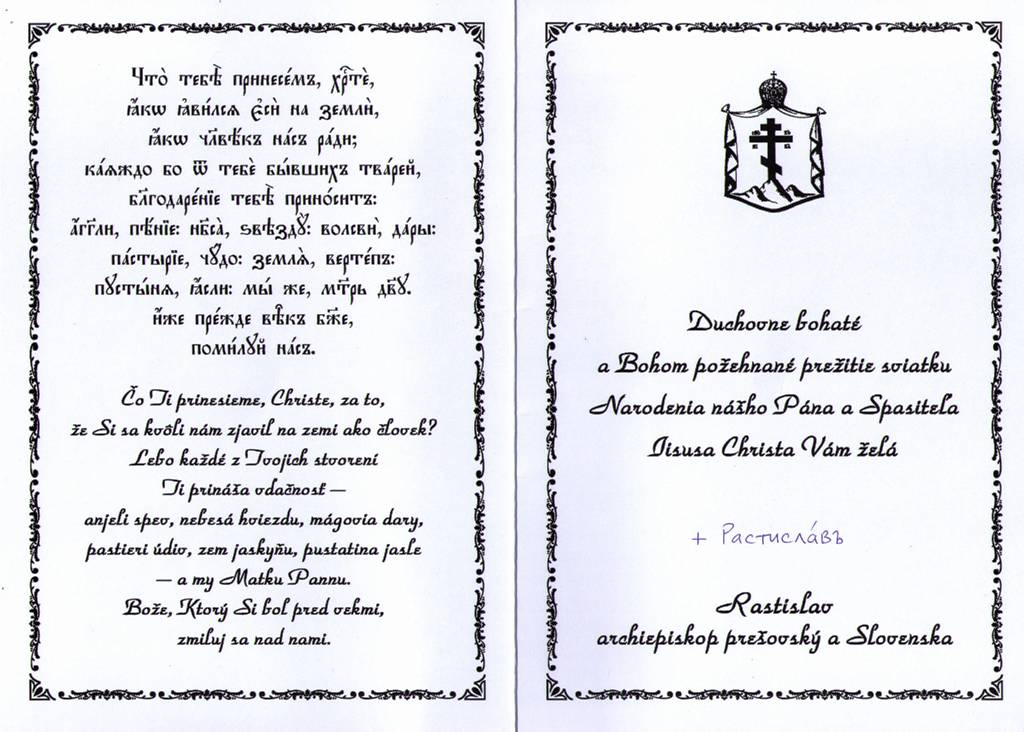 Что̀ тебѣ̀ принесе́мъ, хрⷭ҇тѐ,
ꙗ҆́кѡ ꙗ҆ви́лсѧ є҆сѝ на землѝ,
ꙗ҆́кѡ чл҃вѣ́къ на́съ ра́ди;
ка́ѧждо бо ѿ тебѐ бы́вшихъ тва́рей,
бл҃годаре́нїе тебѣ̀ прино́ситъ:
а҆́гг҃ли, пѣ́нїе: нб҃са̀, ѕвѣздꙋ̀: волсвѝ, да́ры:
па́стырїе, чꙋ́до: землѧ̀, верте́пъ:
пꙋсты́нѧ, ꙗ҆́сли: мы́ же, мт҃рь дв҃ꙋ.
и҆́же пре́жде вѣ̑къ бж҃е,
поми́лꙋй на́съ.
Čo Ti prinesieme, Christe, za to,
že Si sa kvôli nám zjavil na zemi ako človek?
Lebo každé z Tvojich stvorení
Ti prináša vďačnosť —
anjeli spev, nebesá hviezdu, mágovia dary,
pastieri údiv, zem jaskyňu, pustatina jasle
— a my Matku Pannu.
Bože, Ktorý Si bol pred vekmi,
zmiluj sa nad nami.
Duchovne bohaté
a Bohom požehnané prežitie sviatku
Narodenia nášho Pána a Spasiteľa
Iisusa Christa Vám želá
+ Растисла́въ
Rastislav
archiepiskop prešovský a Slovenska